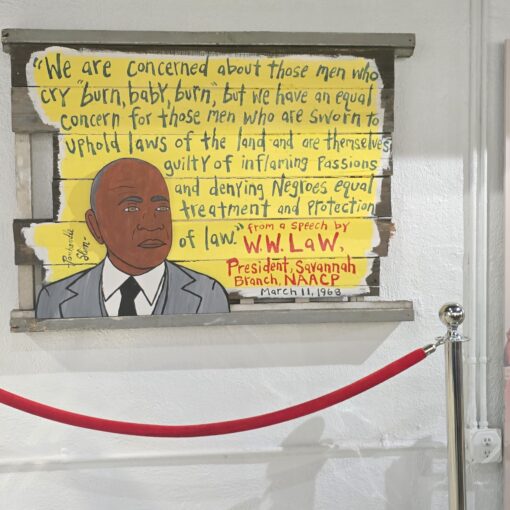 "We are concerned about those men who
cry "burn, baby, burn," but we have an equal
concern for those men who are sworn to
uphold laws of the land and are themselves
guilty of inflaming passions
and denying Negroes equal
treatment and protection
of law." from a speech by
W.W. LaW,
President, Savannah
Branch, NAACP
March 11, 1968
Panhandle
Slim